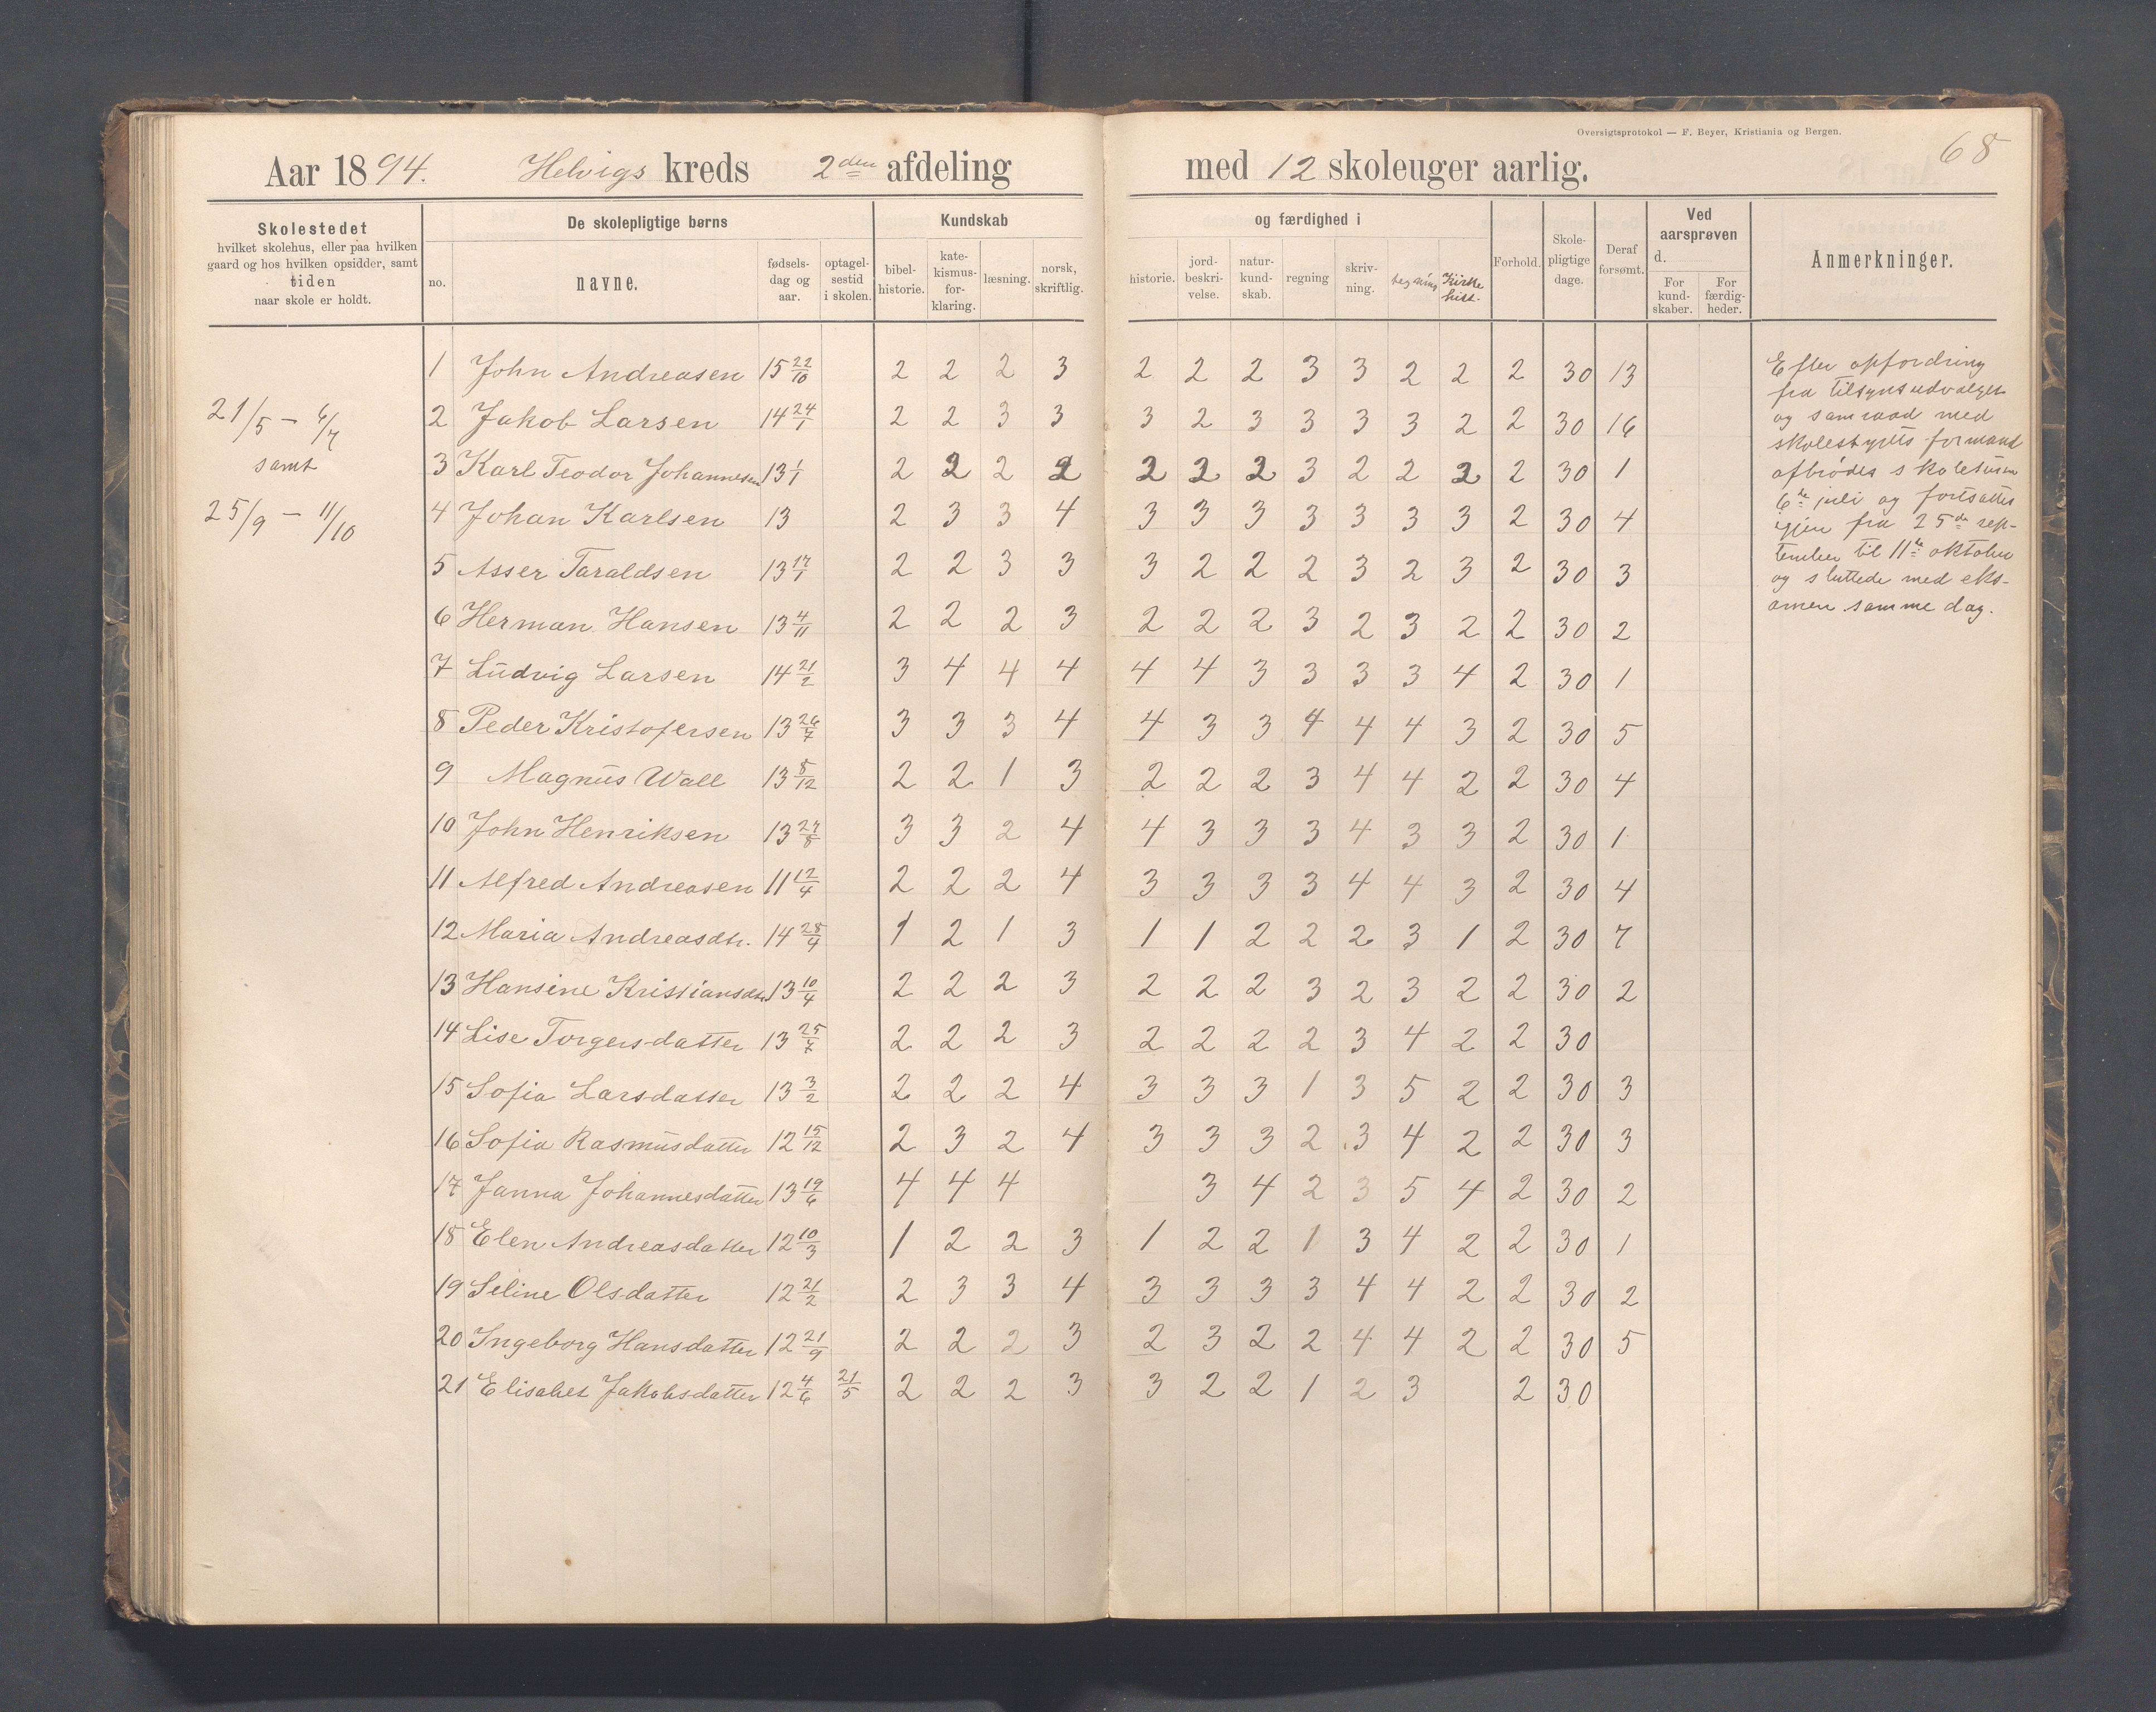 Oversigtsprotokol — F. Beyer, Kristiania og Bergen.
68
Aar 1894. Helvigs kreds 2den afdeling med 12 skoleuger aarlig.
Skolestedet
hvilket skolehus, eller paa hvilken
gaard og hos hvilken opsidder, samt
tiden
naar skole er holdt.
De skolepligtige børns
no. navne. fødselsdag og aar. optagelsestid i skolen.
Kundskab og færdighed i
bibelhistorie. katekismusforklaring. læsning. norsk, skriftlig. historie. jordbeskrivelse. naturkundskab. regning skrivning. tegning Kirkehist.
Forhold. Skolepligtige dage. Deraf forsømt.
Ved aarsprøven d.
For kundskaber. For færdigheder.
Anmerkninger.
21/5 – 6/7
samt
25/9 – 11/10
1 John Andreasen 15 22/10 2 2 2 3 2 2 2 3 3 2 2 2 30 13
2 Jakob Larsen 14 24/1 2 2 3 3 3 2 3 3 3 3 2 2 30 16
3 Karl Teodor Johannesen 13 1/1 2 2 2 2 2 2 2 3 2 2 2 2 30 1
4 Johan Karlsen 13 2 3 3 4 3 3 3 3 3 3 3 2 30 4
5 Asser Taraldsen 13 17/1 2 2 3 3 3 2 2 2 3 2 3 2 30 3
6 Herman Hansen 13 4/11 2 2 2 3 2 2 2 3 2 3 2 2 30 2
7 Ludvig Larsen 14 21/2 3 4 4 4 4 4 3 3 3 3 4 2 30 1
8 Peder Kristofersen 13 26/7 3 3 3 4 4 3 3 4 4 4 3 2 30 5
9 Magnus Wall 13 8/12 2 2 1 3 2 2 2 3 4 4 2 2 30 4
10 John Henriksen 13 27/8 3 3 2 4 4 3 3 3 4 3 3 2 30 1
11 Alfred Andreasen 11 12/4 2 2 2 4 3 3 3 3 4 4 3 2 30 4
12 Maria Andreasdtr. 14 28/4 1 2 1 3 1 1 2 2 2 3 1 2 30 7
13 Hansine Kristiansdtr 13 10/4 2 2 2 3 2 2 2 3 2 3 2 2 30 2
14 Lise Torgersdatter 13 25/7 2 2 2 3 2 2 2 2 3 4 2 2 30
15 Sofia Larsdatter 13 3/2 2 2 2 4 3 3 3 1 3 5 2 2 30 3
16 Sofia Rasmusdatter 12 15/12 2 3 2 4 3 3 3 2 3 4 2 2 30 3
17 Janna Johannesdatter 13 19/6 4 4 4 3 4 2 3 5 4 2 30 2
18 Elen Andreasdatter 12 10/3 1 2 2 3 1 2 2 1 3 4 2 2 30 1
19 Seline Olsdatter 12 21/2 2 3 3 4 3 3 3 3 4 4 2 2 30 2
20 Ingeborg Hansdatter 12 21/9 2 2 2 3 2 3 2 2 4 4 2 2 30 5
21 Elisabet Jakobsdatter 12 4/6 21/5 2 2 2 3 3 2 2 1 2 3 2 30
Efter opfordring
fra tilsynsudvalget
og samraad med
skolestyrets formand
afbrødes skoleturen
6te juli og fortsattes
igjen fra 25de sep-
tember til 11te oktober
og sluttede med eks-
amen samme dag.